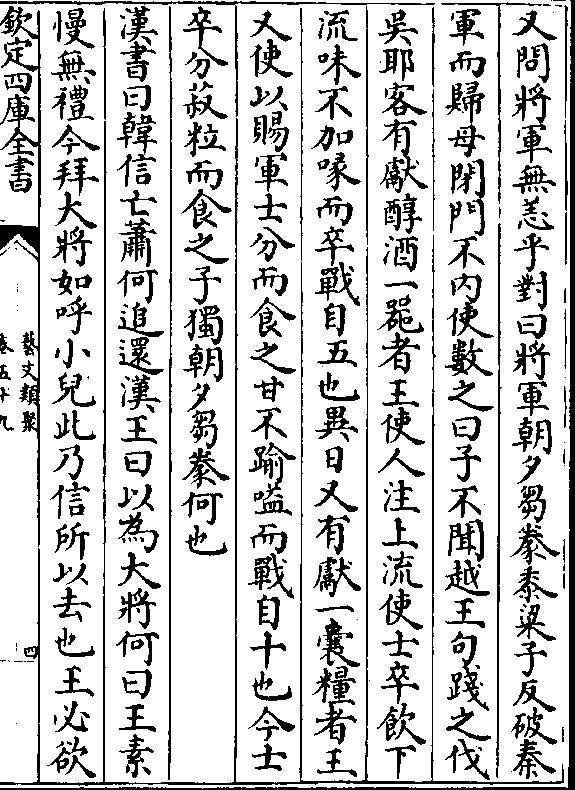 又問將軍無恙乎對曰將軍朝夕芻豢黍粱子反破秦
軍而歸母閉門不内使數之曰子不聞越王句踐之伐
吳耶客有獻醇酒一噐者王使人注上流使士卒飲下
流味不加喙而卒戰自五也異日又有獻一囊糧者王
又使以賜軍士分而食之甘不踰嗌而戰自十也今士
卒分菽粒而食之子獨朝夕芻豢何也
漢書曰韓信亡蕭何追還漢王曰以為大將何曰王素
慢無禮今拜大將如呼小兒此乃信所以去也王必欲
欽定四庫全書
藝文類聚
卷五十九
四